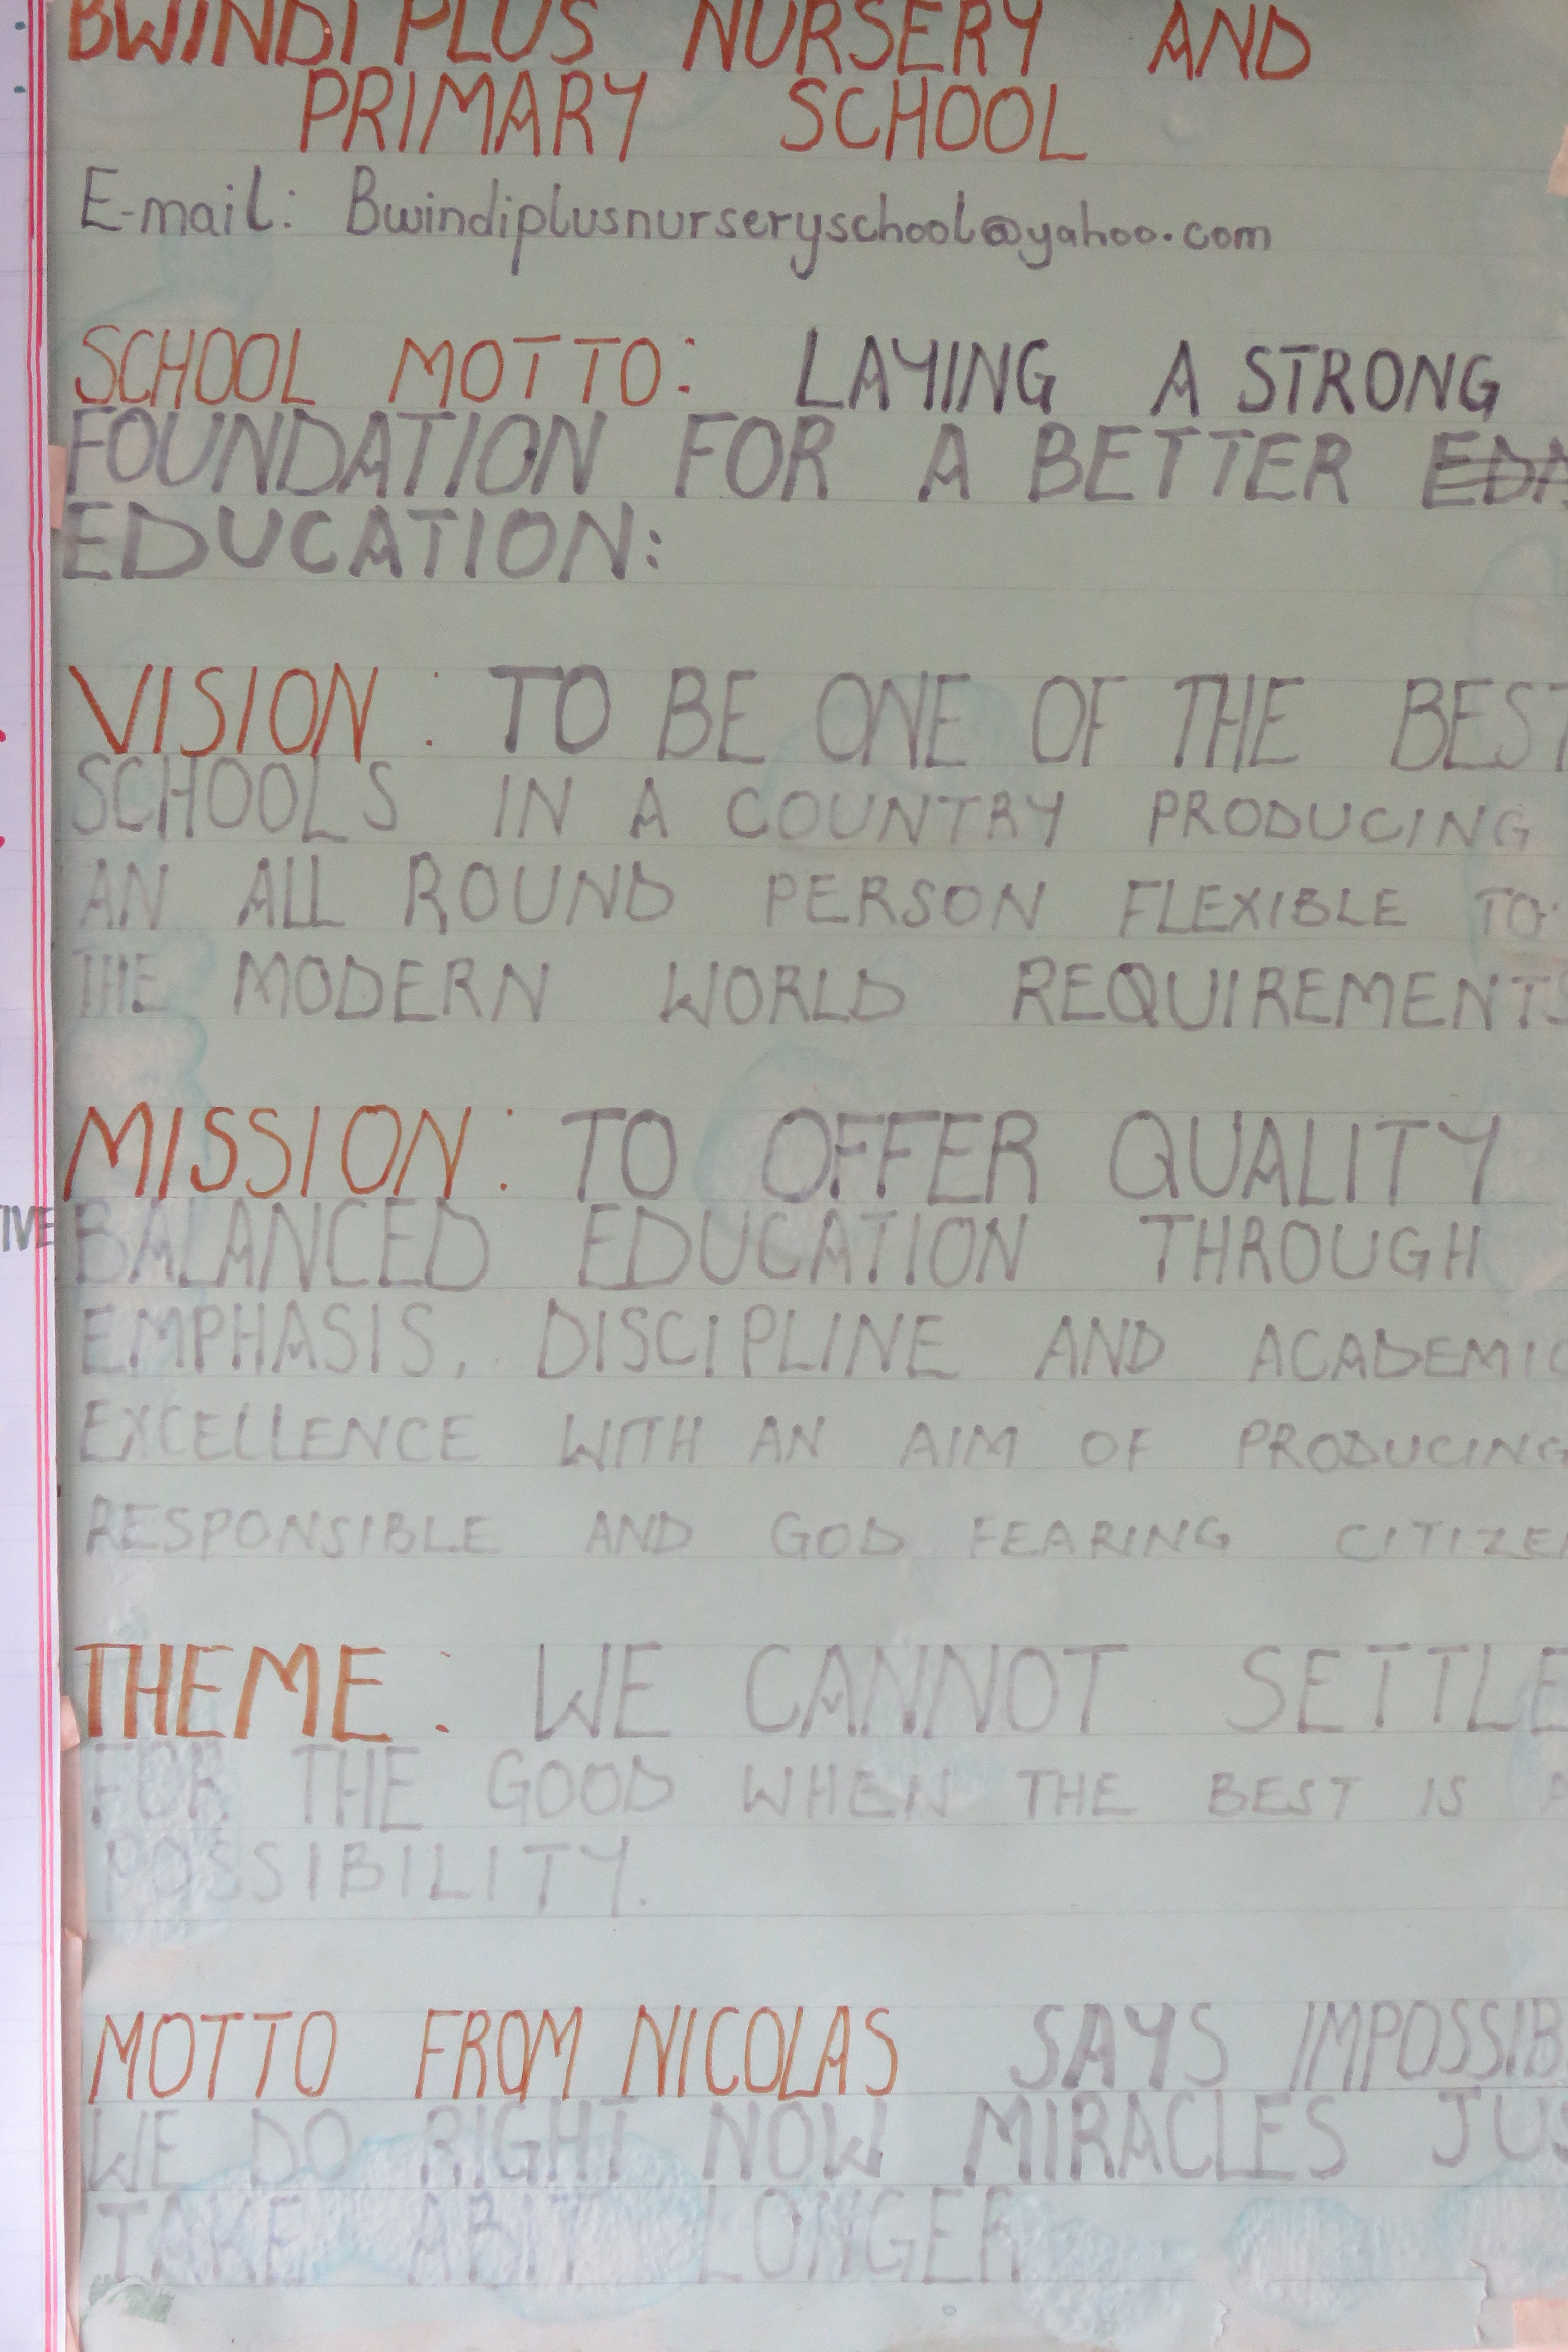 BWINDI PLUS NURSERY AND
PRIMARY SCHOOL
E-mail: Bwindiplusnurseryschool@yahoo.com
SCHOOL MOTTO: LAYING A STRONG
FOUNDATION FOR A BETTER
EDUCATION:
VISION: TO BE ONE OF THE BEST
SCHOOLS IN A COUNTRY PRODUCING
AN ALL ROUND PERSON FLEXIBLE TO
THE MODERN WORLD REQUIREMENTS
MISSION: TO OFFER QUALITY
TIVE
BALANCED EDUCATION THROUGH
EMPHASIS, DISCIPLINE AND ACADEMIC
EXCELLENCE WITH AN AIM OF PRODUCING
RESPONSIBLE AND GOD FEARING CITIZE
THEME: WE CANNOT SETTLE
FOR THE GOOD WHEN THE BEST IS A
POSSIBILITY.
MOTTO FROM NICOLAS SAYS IMPOSSIB
WE DO RIGHT NOW MIRACLES JUS
TAKE ABIT LONGER